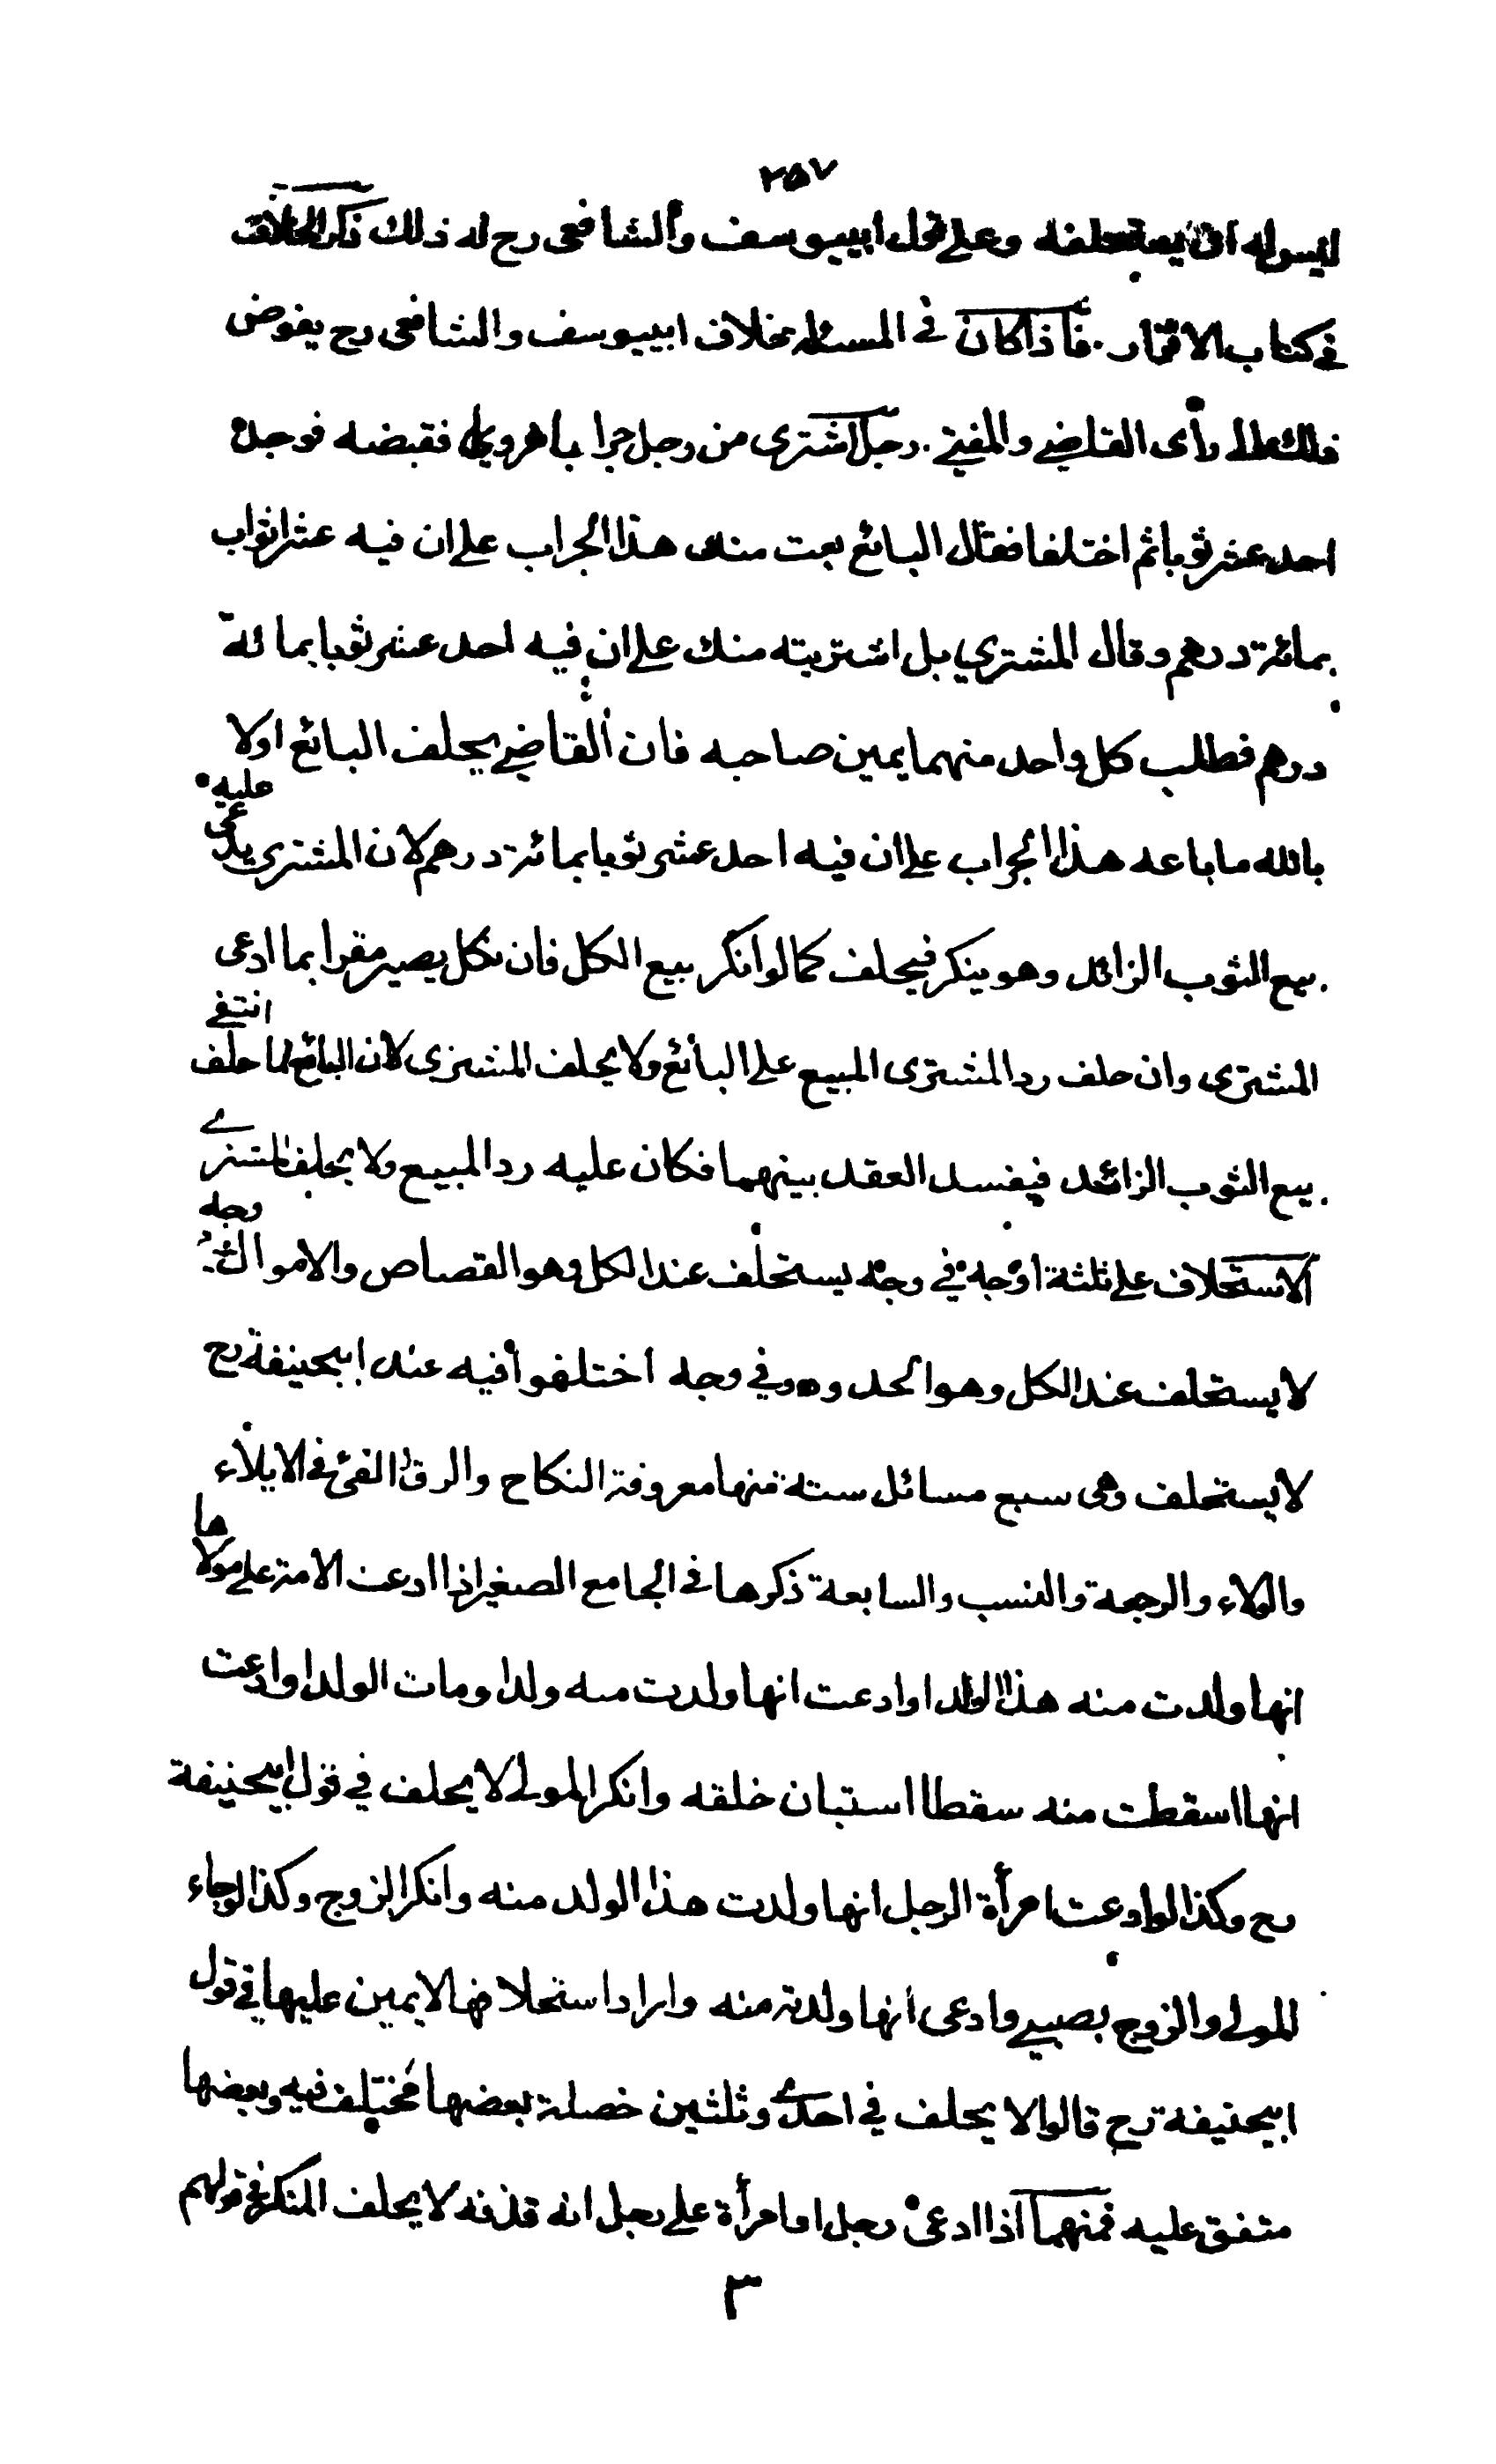 ٢٥٧
ليس له ان يستحلفه وعلى قول ابييوسف والشافعى رح له ذلك ذكر الخلاف
في كتاب الاقرار . فاذا كان في المسئلة خلاف ابييوسف والشافعى رح يفوض
ذلك الى رأى القاضي والمفتي . رجل اشترى من رجل جرابا هرويا فقبضه فوجده
احد عشر ثوبا ثم اختلفا فقال البائع بعت منك هذا الجراب على ان فيه عشر اثواب
بمائة درهم وقال المشتري بل اشتريته منك على ان فيه احد عشر ثوبا بمائة
درهم فطلب كل واحد منهما يمين صاحبه فان القاضي يحلف البائع اولا
بالله ما باعه هذا الجراب على ان فيه احد عشر ثوبا بمائة درهم لان المشتري يدعى عليه
بيع الثوب الزائد وهو ينكر فيحلف كما لو انكر بيع الكل فان نكل يصير مقرا بما ادعى
المشترى وان حلف رد المشترى المبيع على البائع ولا يحلف المشترى لان البائع لما حلف انتفى
بيع الثوب الزائد فيفسد العقد بينهما فكان عليه رد المبيع ولا يحلف المشترے
الاستحلاف على ثلثة اوجه في وجه يستحلف عند الكل وهو القصاص والاموال وجه
لا يستحلف عند الكل وهو الحدود وفي وجه اختلفوا فيه عند ابيحنيفة رح
لا يستحلف وهى سبع مسائل ستة منها معروفة النكاح والرق الفئ في الايلاء
والولاء والرجعة والنسب والسابعة ذكرها في الجامع الصغير اذا ادعت الامة على مولاها
انها ولدت منه هذا الولد او ادعت انها ولدت منه ولدا ومات الولد او ادعت
انها اسقطت منه سقطا استبان خلقه وانكر المولى لا يحلف في قول ابيحنيفة
رح وكذا لو ادعت امرأة الرجل انها ولدت هذا الولد منه وانكر الزوج وكذا لو جاء
المولى والزوج بصبي وادعى انها ولدته منه واراد استحلافها لا يمين عليها في قول
ابيحنيفة رح قالوا لا يحلف في احدى وثلثين خصلة بعضها مختلف فيه وبعضها
متفق عليه فمنها اذا ادعى رجل او امرأة على رجل انه قذفه لا يحلف المنكر في قولهم
٣